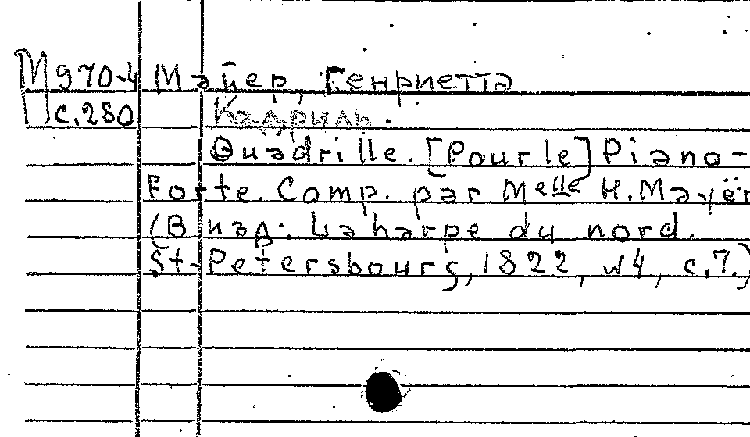 М970-4 Майер, Генриетта
с.280 Кадриль.
Quadrille. [Pour le] Piano-
Forte. Comp. par Melle H. Mayër
(В изд: La harpe du nord.
St-Petersbourg, 1822, №4, с.7.)